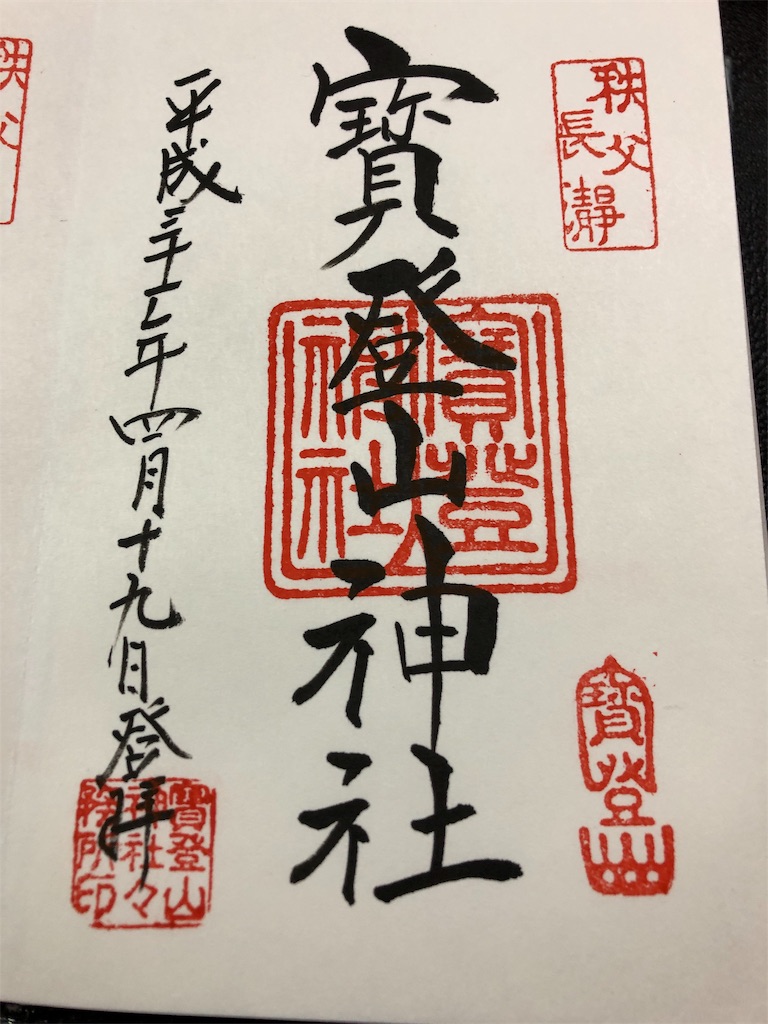 秩父
長瀞
寶登山
寶登山神社
寶登山
神社
平成三十一年四月十九日登拝
寶登山
神社々
務所印
秩父